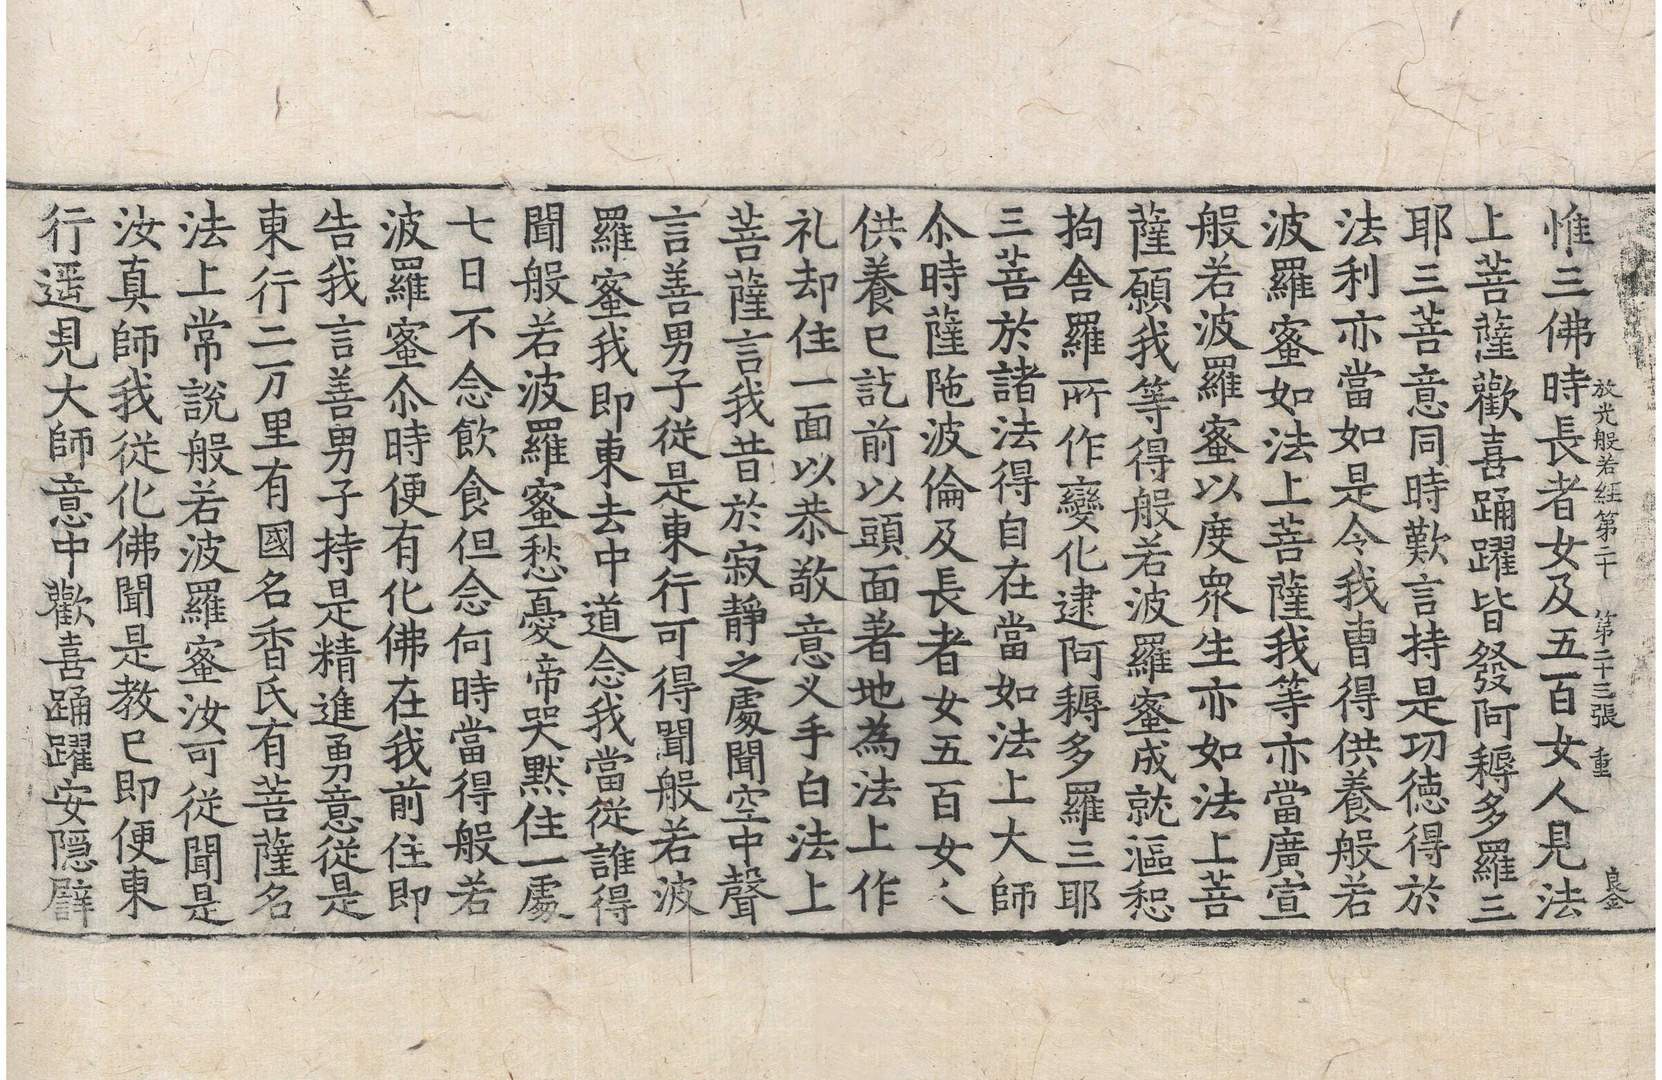 放光般若經第二十　第二十三張　重　良金
惟三佛時長者女及五百女人見法
上菩薩歡喜踊躍皆發阿耨多羅三
耶三菩意同時歎言持是功德得於
法利亦當如是令我曹得供養般若
波羅蜜如法上菩薩我等亦當廣宣
般若波羅蜜以度衆生亦如法上菩
薩願我等得般若波羅蜜成就漚惒
拘舍羅所作變化逮阿耨多羅三耶
三菩於諸法得自在當如法上大師
尒時薩陁波倫及長者女五百女人
供養已訖前以頭面著地為法上作
礼却住一面以恭敬意叉手白法上
菩薩言我昔於寂靜之處聞空中聲
言善男子從是東行可得聞般若波
羅蜜我即東去中道念我當從誰得
聞般若波羅蜜愁憂啼哭默住一處
七日不念飲食但念何時當得般若
波羅蜜尒時便有化佛在我前住即
告我言善男子持是精進勇意從是
東行二万里有國名香氏有菩薩名
法上常說般若波羅蜜汝可從聞是
汝真師我從化佛聞是教已即便東
行遥見大師意中歡喜踊躍安隱譬